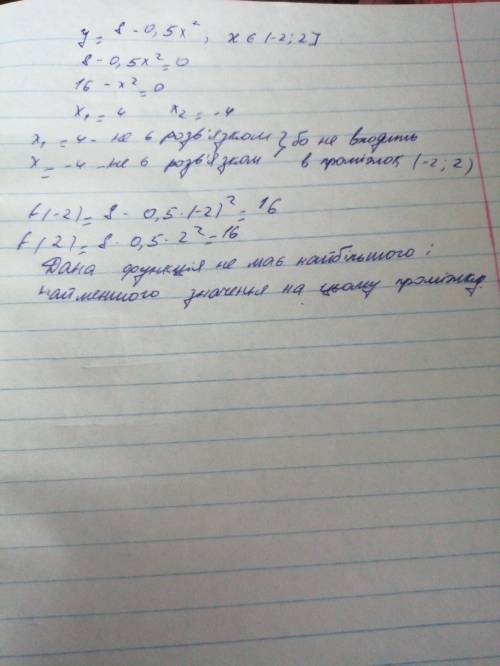 y = 8 - 0,5x², x ∈ [-2; 2]
8 - 0,5x² = 0
16 - x² = 0
x₁ = 4 x₂ = -4
x₁ = 4 - не є розв'язком } бо не входить
x = -4 - не є розв'язком в проміжок (-2; 2)
f(-2) = 8 - 0,5·(-2)² = 16
f(2) = 8 - 0,5·2² = 16
Дана функція не має найбільшого і
найменшого значення на цьому проміжку.